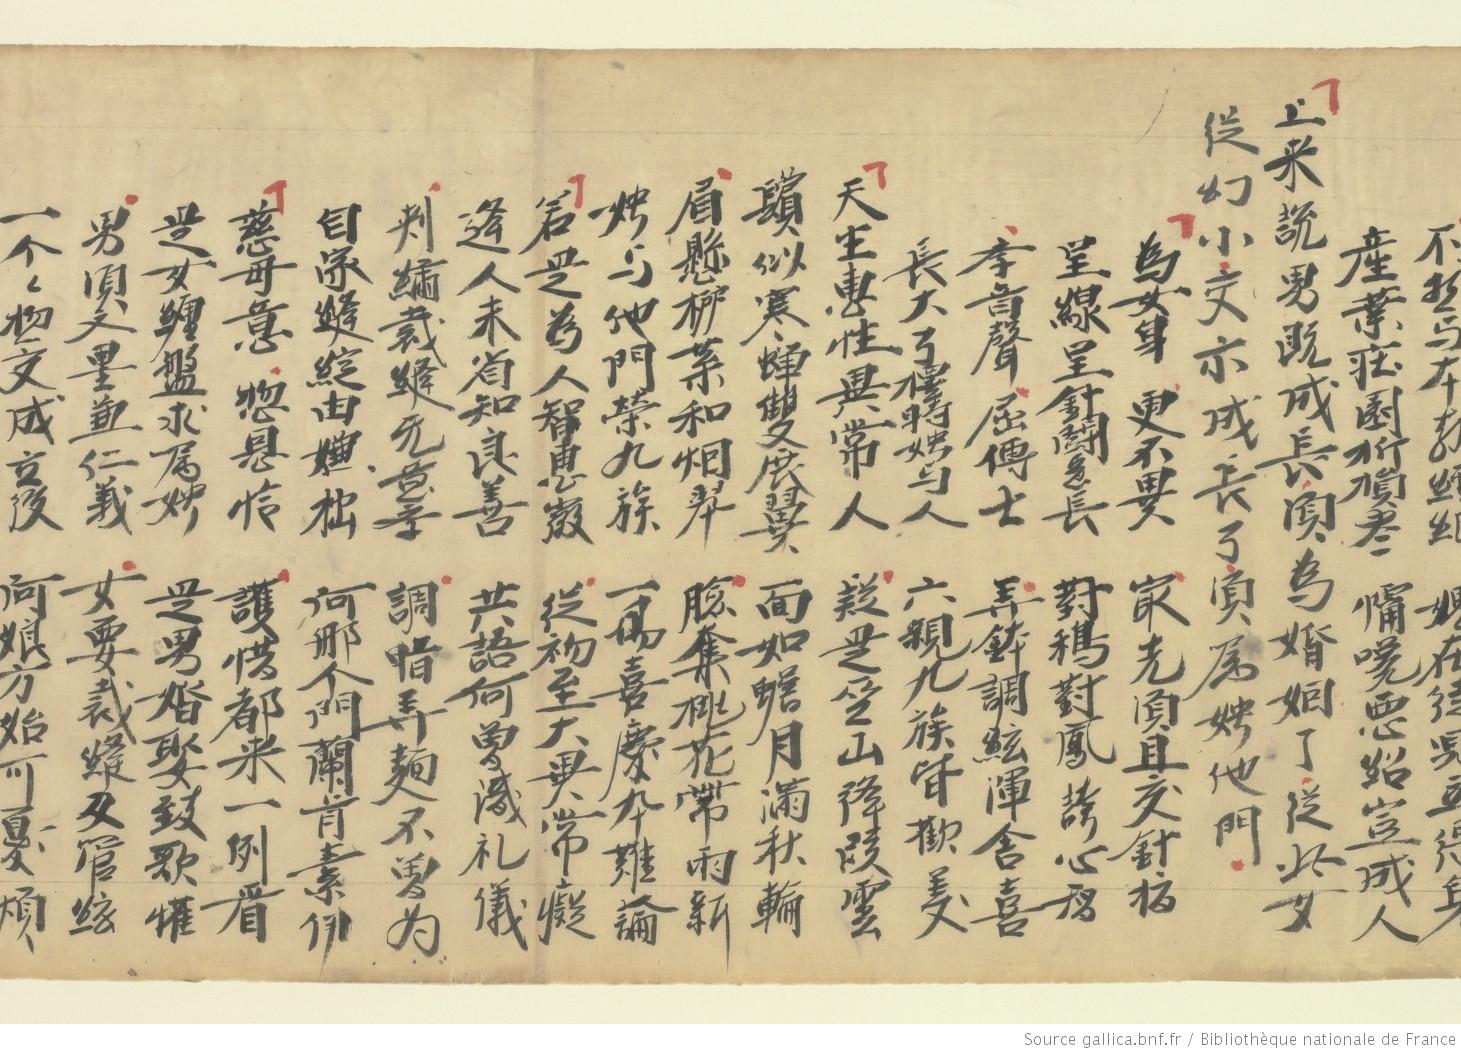 產業莊園折損盡 慵嘆惡紹豈成人
上来說男既成長須為婚姻了從此女
從幼小交示成長了須為娉他門
為女身 更不異 家先須且交針指
呈線呈針鬪意長 對鵶對鳳誇心智
李音聲 屈傅士 弄鉢調絃渾舍喜
長大了擇時娉与人 六親九族皆歡美
天生惠性異常人 疑是笁山降段雲
鬢似寒蟬雙展翼 面如蟾月滿秋輪
眉懸柳葉和烟翠 臉奪桃花帶雨新
娉与他門榮九族 一場喜慶卆難論
若是為人智惠微 從初至大異常癡
逢人未省知良善 共語何曾識礼儀
刺繡裁縫无意学 調脂弄麵不曾为
自家縫綻由嬾拙 何那个門蘭肯素伊
慈母意 惣恳恰 護惜都来一例看
是女纏盤求属娉 是男婚娶鼓歌懽
男須文墨兼仁義 女要裁縫及管絃
一个々惣交成立後 阿娘方始可憂煩
Source gallica.bnf.fr / Bibliothèque nationale de France